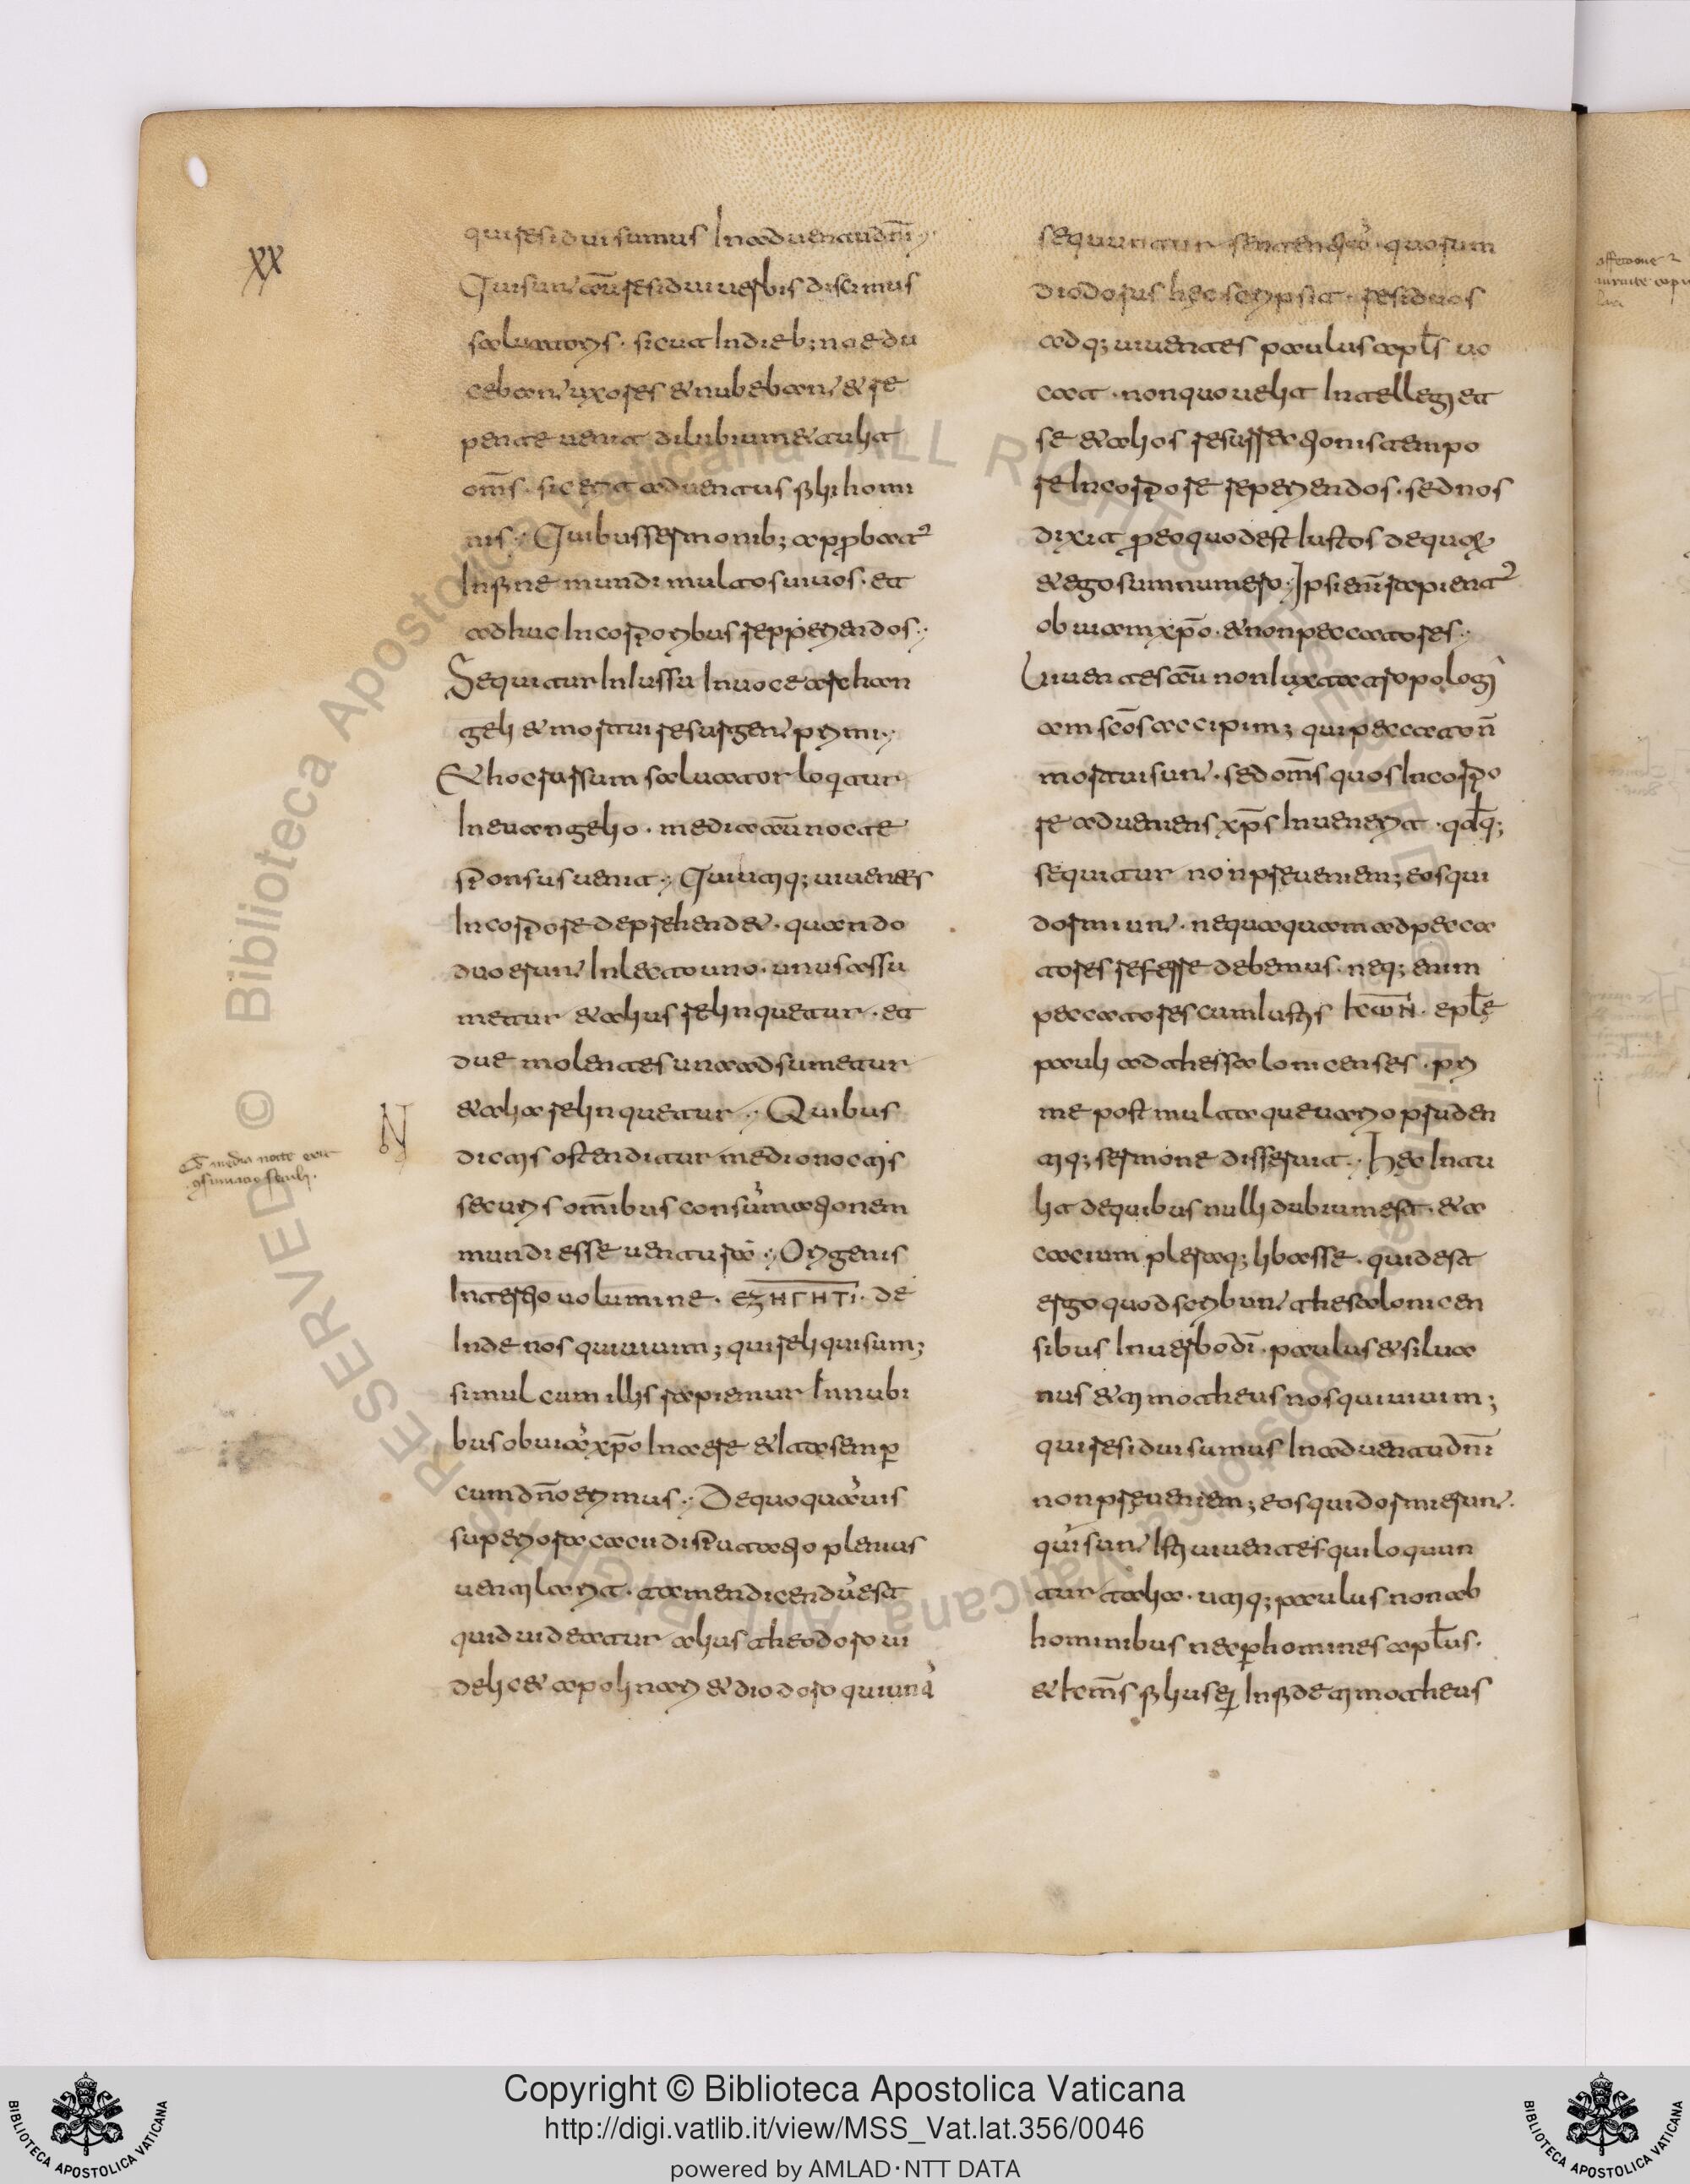 xx
qui residui sumus In aduentu dnī.
Qui sunt aūt residui uerbis discimus
saluatoris. sicut In dieb; noe du
cebant uxores & nubebant & re
pente uenit dilubium & tulit
om̄s. sic erit aduentus filii homi
nis. Quibus sermonib; app̱bat᾿
In fine mundi multos uiuos. et
adhuc In corporibus repperiendos.
Sequitur In Iussu In uoce archan
geli & mortui resurgent primi.
& hoc rursum saluator loqitur
In euangelio. media aūt nocte
sponsus uenit. Qui utiq; uiuentes
In corpore deprehendet. quando
duo erunt In lecto uno. unus assu
metur & alius relinquetur. et
due molentes una adsumetur
& alia relinquetur. Quibus
dictis ostenditur medio noctis
securis om̄ibus consūmationem
mundi esse uenturā. Origenis
In tertio uolumine. ΕΖΗΓΗΤΙ. de
Inde nos qui uiuim; qui reliqui sum;
simul cum illis rapiemur In nubi
bus obuiā xp̄o In aere & Ita semp̱
cum dn̄o erimus. De quo quāuis
superiora cacii disputatio plenius
uentilarit. tamen dicendū est
quid uideatur alius theodoro ui
delic& apolinari & diodoro qui unā
Et media nocte erit
9sumatio seculi.
sequuntur sententiā. quorum
diodorus hęc scripsit. residuos
adq; uiuentes paulus apl̄s uo
cat. non quo uelit Intellegi et
se & alios resurrectionis tempo
re In corpore reperiendos. sed nos
dixit p̱ eo quod est Iustos de quoꝝ
& ego sum numero. Ipsi enī rapient᾿
obuiam xp̄o. & non peccatores.
Uiuentes aūt non Iuxta tropologi
am sc̄os accipim; qui peccato n̄
mortui sunt. sed om̄s quos In corpo
re adueniens xp̄s Inuenerit. qdq;
sequitur non preueniem; eos qui
dormiunt. nequaquam ad pecca
tores referre debemus. neq; enim
peccatores cum Iustis ΙCѠΝ. epl̄ę
pauli ad thessalonicenses. pri
me post multa que uario pruden
tiq; sermone disseruit. Hęc Intu
lit de quibus nulli dubium est. & a
cacium pleraq; libasse. quid est
ergo quod scribunt thesalonicen
sibus In uerbo dī. paulus & silua
nus & timotheus nos qui uiuim;
qui residui sumus In aduentu dnī
non preueniem; eos qui dormierunt.
qui sunt Isti uiuentes qui loquun
tur talia. utiq; paulus non ab
hominibus nec p̱ homines apl̄us.
& Icm̄s filius ei In fide timotheus
Copyright © Biblioteca Apostolica Vaticana
http://digi.vatlib.it/view/MSS_Vat.lat.356/0046
powered by AMLAD·NTT DATA
BIBLIOTECA APOSTOLICA VATICANA
BIBLIOTECA APOSTOLICA VATICANA